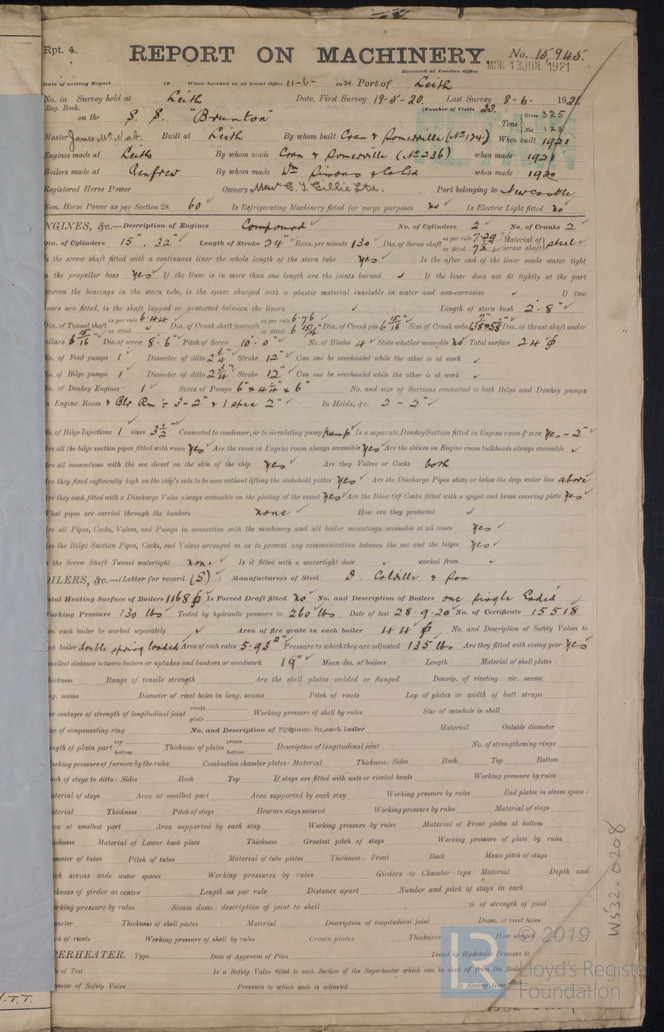 Rpt. 4.
REPORT ON MACHINERY. No. 15945.
Received at London Office MON 13 JUN. 1921
Date of writing Report 19 When handed in at Local Office 11-6- 1921 Port of Leith
No. in Survey held at Leith Date, First Survey 19-5-20. Last Survey 8-6- 1921
Reg. Book. (Number of Visits 33.
on the S. S. "Brunton" Tons Gross 325 Net 128
Master James McNab. Built at Leith By whom built Cran & Somerville (No 124) When built 1921
Engines made at Leith By whom made Cran & Somerville (No 236) when made 1921
Boilers made at Renfrew By whom made Wm Simons & Co Ltd when made 1920
Registered Horse Power Owners Mess G. T. Gillie Ltd. Port belonging to Newcastle
Nom. Horse Power as per Section 28 60 Is Refrigerating Machinery fitted for cargo purposes no Is Electric Light fitted no
NGINES, &c.—Description of Engines Compound No. of Cylinders 2 No. of Cranks 2
Dia. of Cylinders 15" 32" Length of Stroke 24" Revs. per minute 130 Dia. of Screw shaft as per rule as fitted Material of screw shaft steel
Is the screw shaft fitted with a continuous liner the whole length of the stern tube Yes Is the after end of the liner made water tight
in the propeller boss Yes If the liner is in more than one length are the joints burned ✓ If the liner does not fit tightly at the part
between the bearings in the stern tube, is the space charged with a plastic material insoluble in water and non-corrosive ✓ If two
liners are fitted, is the shaft lapped or protected between the liners ✓ Length of stern bush 2'-8"
Dia. of Tunnel shaft as per rule 6.44 as fitted ✓ Dia. of Crank shaft journals as per rule 6.76 as fitted 6 15/16" Dia. of Crank pin 6 15/16" Size of Crank webs Dia. of thrust shaft under
ollars 6 15/16" Dia. of screw 8'-6" Pitch of Screw 10'-0" No. of Blades 4 State whether moveable no Total surface 24 ф
No. of Feed pumps 1 Diameter of ditto 2 3/4" Stroke 12" Can one be overhauled while the other is at work ✓
No. of Bilge pumps 1 Diameter of ditto 2 3/4" Stroke 12" Can one be overhauled while the other is at work ✓
No. of Donkey Engines 1 Sizes of Pumps 6" & 4 1/4" & 6" No. and size of Suctions connected to both Bilge and Donkey pumps
In Engine Room & Blr Rm :- 3-2" & 1 spec 2" In Holds, &c. 2-2"
No. of Bilge Injections 1 sizes 3 1/2" Connected to condenser, or to circulating pump pump Is a separate Donkey Suction fitted in Engine room & size Yes - 2"
Are all the bilge suction pipes fitted with roses Yes Are the roses in Engine room always accessible Yes Are the sluices on Engine room bulkheads always accessible ✓
Are all connections with the sea direct on the skin of the ship Yes Are they Valves or Cocks both
Are they fixed sufficiently high on the ship's side to be seen without lifting the stokehold plates Yes Are the Discharge Pipes above or below the deep water line above
Are they each fitted with a Discharge Valve always accessible on the plating of the vessel Yes Are the Blow Off Cocks fitted with a spigot and brass covering plate Yes
What pipes are carried through the bunkers none How are they protected ✓
Are all Pipes, Cocks, Valves, and Pumps in connection with the machinery and all boiler mountings accessible at all times Yes
Are the Bilge Suction Pipes, Cocks, and Valves arranged so as to prevent any communication between the sea and the bilges Yes
Is the Screw Shaft Tunnel watertight none Is it fitted with a watertight door ✓ worked from ✓
OILERS, &c.—(Letter for record (S) ) Manufacturers of Steel D. Colville & Son
Total Heating Surface of Boilers 1168 ф Is Forced Draft fitted no No. and Description of Boilers one Single Ended
Working Pressure 130 lbs Tested by hydraulic pressure to 260 lbs Date of test 28-9-20 No. of Certificate 15518
Can each boiler be worked separately ✓ Area of fire grate in each boiler 44 ф No. and Description of Safety Valves to
ch boiler double spring loaded Area of each valve 5.93 Pressure to which they are adjusted 135 lbs Are they fitted with easing gear Yes
Smallest distance between boilers or uptakes and bunkers or woodwork 19" Mean dia. of boilers Length Material of shell plates
hickness Range of tensile strength Are the shell plates welded or flanged Descrip. of riveting: cir. seams
ng. seams Diameter of rivet holes in long. seams Pitch of rivets Lap of plates or width of butt straps
er centages of strength of longitudinal joint rivets plate Working pressure of shell by rules Size of manhole in shell
ze of compensating ring No. and Description of Furnaces in each boiler Material Outside diameter
ngth of plain part top bottom Thickness of plates crown bottom Description of longitudinal joint No. of strengthening rings
orking pressure of furnace by the rules Combustion chamber plates: Material Thickness: Sides Back Top Bottom
itch of stays to ditto: Sides Back Top If stays are fitted with nuts or riveted heads Working pressure by rules
aterial of stays Area at smallest part Area supported by each stay Working pressure by rules End plates in steam space:
aterial Thickness Pitch of stays How are stays secured Working pressure by rules Material of stays
rea at smallest part Area supported by each stay Working pressure by rules Material of Front plates at bottom
hickness Material of Lower back plate Thickness Greatest pitch of stays Working pressure of plate by rules
ameter of tubes Pitch of tubes Material of tube plates Thickness: Front Back Mean pitch of stays
tch across wide water spaces Working pressures by rules Girders to Chamber tops: Material Depth and
ickness of girder at centre Length as per rule Distance apart Number and pitch of stays in each
orking pressure by rules Steam dome: description of joint to shell % of strength of joint
ameter Thickness of shell plates Material Description of longitudinal joint Diam. of rivet holes
tch of rivets Working pressure of shell by rules Crown plates Thickness How stayed
PERHEATER. Type Date of Approval of Plan Tested by Hydraulic Pressure to
te of Test Is a Safety Valve fitted to each Section of the Superheater which can be shut off from the Boiler
ameter of Safety Valve Pressure to which each is adjusted Is Easing Gear fitted
W532-0208
© 2019
LR
Lloyd's Register
Foundation